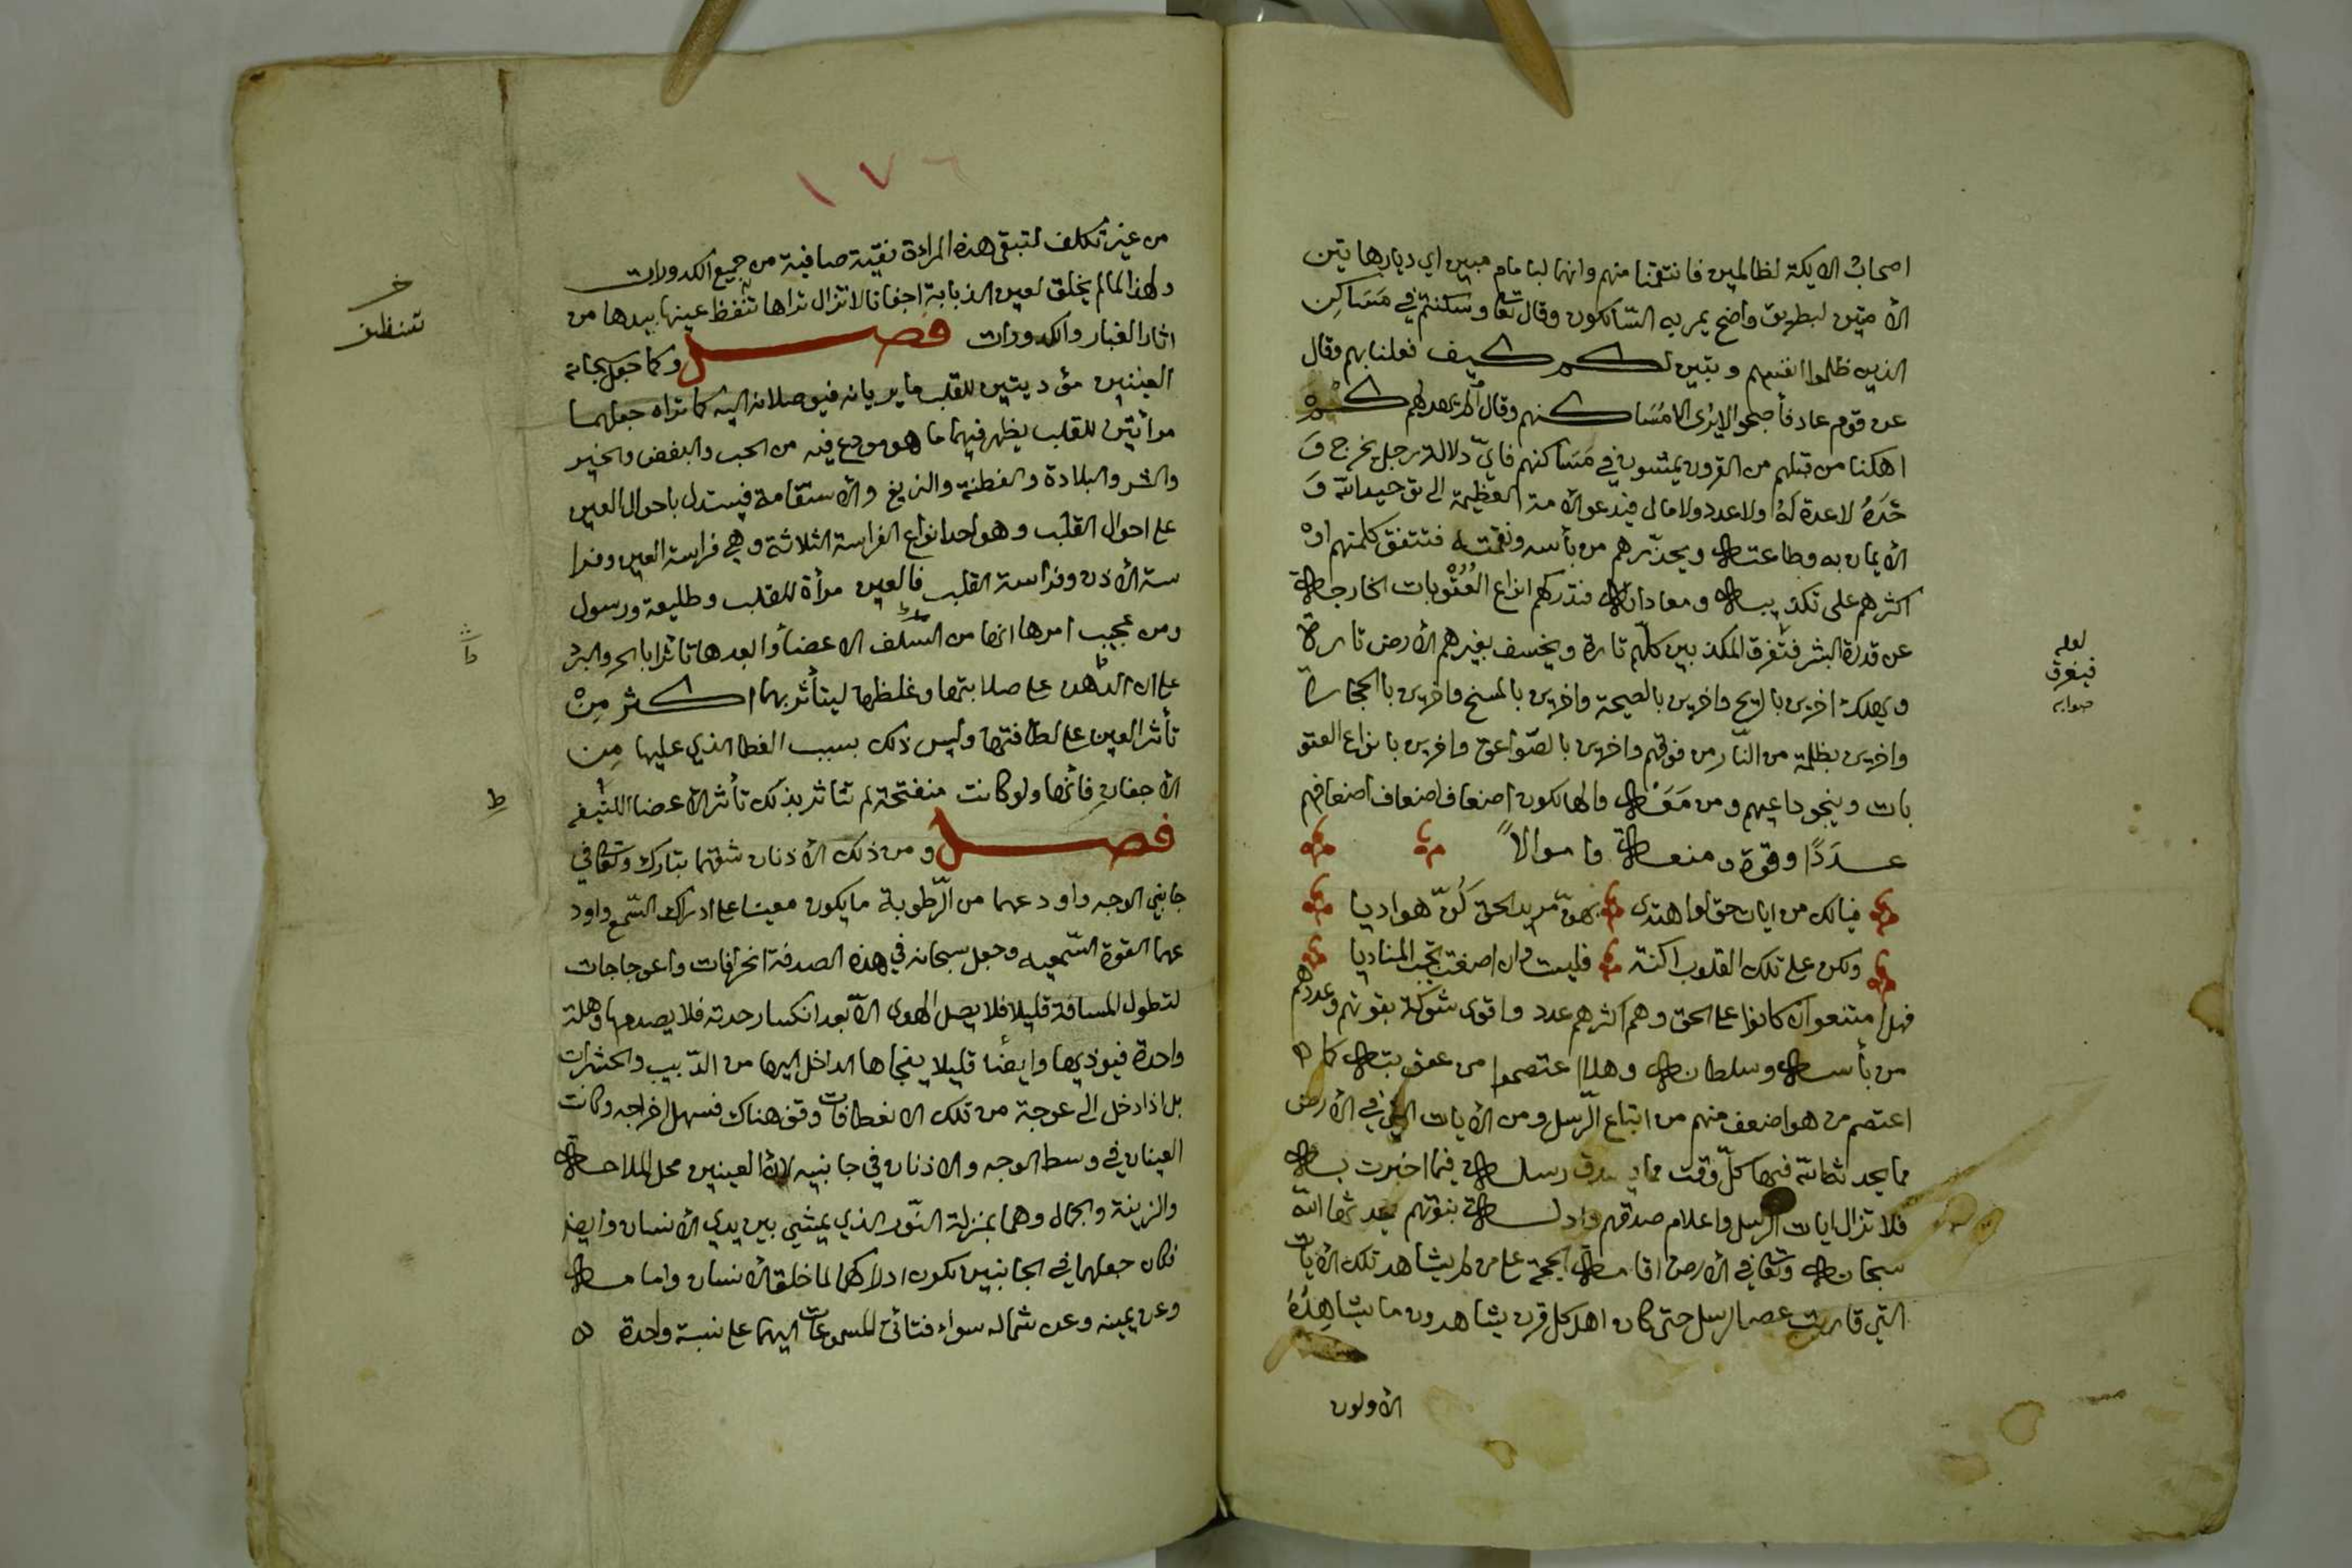 اصحاب الايكة لظالمين فانتقمنا منهم وانهما لبامام مبين اي ديارهاتين
الأمتين لبطريق واضح يمر به السّالكون وقال تعا وسكنتم في مَسَاكِن
الذين ظلموا انفسهم وتبين لكم كيف فعلنا بهم وقال
عن قوم عاد فأصبحوا لا يرى الا مسَاكنهم وقال أولم يهد لهم كمْ
اهلكنا من قبلهم من القرون يمشون في مَسَاكنهم فايّ دلالة رجل يخرج وَ
حْدَهُ لا عدة لهُ ولا عدد ولا مال فيدعو الأمة العظيمة الى توحيد الله وَ
الأيمان به وطاعته ويحذّرهم من بأسه ونقمته فتتفق كلمتهم اوْ
اكثرهم على تكذيبه ومعاداته فتدركهم انواع العُقُوبات الخارجة
عن قدرة البشر فتفرق المكذبين كلّهم تارة ويخسف بغيرهم الأرض تارة
ويهلك اخرين بالريح واخرين بالصيحة واخرين بالمسخ واخرين بالحجارة
واخرين بظلمة من النّار من فوقهم واخرين بالصّواعق واخرين بانواع العقو
بات وينجو داعيهم ومن مَعَهُ والهالكون اضعاف اضعاف اضعافهم
عدَدًا وقوة ومنعة واموالاً
فيالك من ايات حق لو اهتدى بهنّ مريد الحق كُنّ هواديا
ولكن على تلك القلوب اكنة فليست وان اصغت تجيب المناديا
فهلا امتنعوا ان كانوا على الحق وهم اكثرهم عدد واقوى شوكة بقوتهم وعددهم
من بأسه وسلطانه وهلا اعتصموا من عقوبته كما
اعتصم من هو اضعف منهم من اتباع الرّسل ومن الأيات التي في الأرض
مما يحدثه الله فيها كلّ وقت ما يصدق رسله فيما اخبرت به
فلا تزال ايات الرسل واعلام صدقهم وادلة نبوتهم يحدثها الله
سبحانه وتعا في الأرض اقامة للحجة على من لم يشاهد تلك الأيات
التي قاربت عصر الرسل حتى كان اهل كل قرن يشاهدون ما يشاهِدُهُ
الأولون
لعله
فيغرق
صوابه
١٧٦
من غير تكلف لتبقى هذه المرادة نقيّة صافية من جميع الكدورات
ولهذا لما لم يخلق لعين الذبابة اجفانا لا تزال تراها تنفظ عينها بيدها من
اثار الغبار والكدورات فصل وكما جعل سبحانه
العينين مؤديتين للقلب ما يريانه فيوصلانه اليه كما تراه جعلهما
مرأتين للقلب يظهر فيهما ما هو مودع فيه من الحب والبغض والخير
والشر والبلادة والفطنة والزيغ والأستقامة فيستدل باحوال العين
على احوال القلب وهو احد انواع الفراسة الثلاثة وهي فراسة العين وفرا
سة الأذن وفراسة القلب فالعين مرأة للقلب وطليعة ورسول
ومن عجيب امرها انها من الطف الاعضأ وابعدها تاثرا بالحر والبرد
على ان الأذن على صلابتها وغلظها ليتأثر بهما اكثر مِنْ
تأثر العين على لطافتها وليس ذلك بسبب الغطا الذي عليها مِن
الأجفان فأنها ولو كانت منفتحة لم تتاثر بذلك تأثر الأعضا اللطيفه
فصل ومن ذلك الأذنان شقهما تبارك وتعا في
جانبي الوجه واودعهما من الرّطوبة ما يكون معينا على ادراك السّمع واود
عهما القوة السّمعيه وجعل سبحانه في هذه الصدفة انحرافات واعوجاجات
لتطول المسافة قليلا فلا يصل الهوى الا بعد انكسار حدته فلا يصدمها وهلة
واحدة فيوذيها وايضًا قليلا يفجاها الداخل اليها من الدّبيب والحشرات
بل اذا دخل الى عوجة من تلك الانعطافات وقف هناك فسهل اخراجه وكانت
العينان في وسط الوجه والاذنان في جانبيه لأن العينين محل الملاحة
والزينة والجمال وهما بمنزلة النّور الذي يمشي بين يدي الأنسان وايضا
فكان جعلهما في الجانبين لكون ادراكهما لما خلف الأنسان وامامه
وعن يمينه وعن شماله سواء فتاتي المسموعات اليهما على نسبة واحدة
تنظف
ط